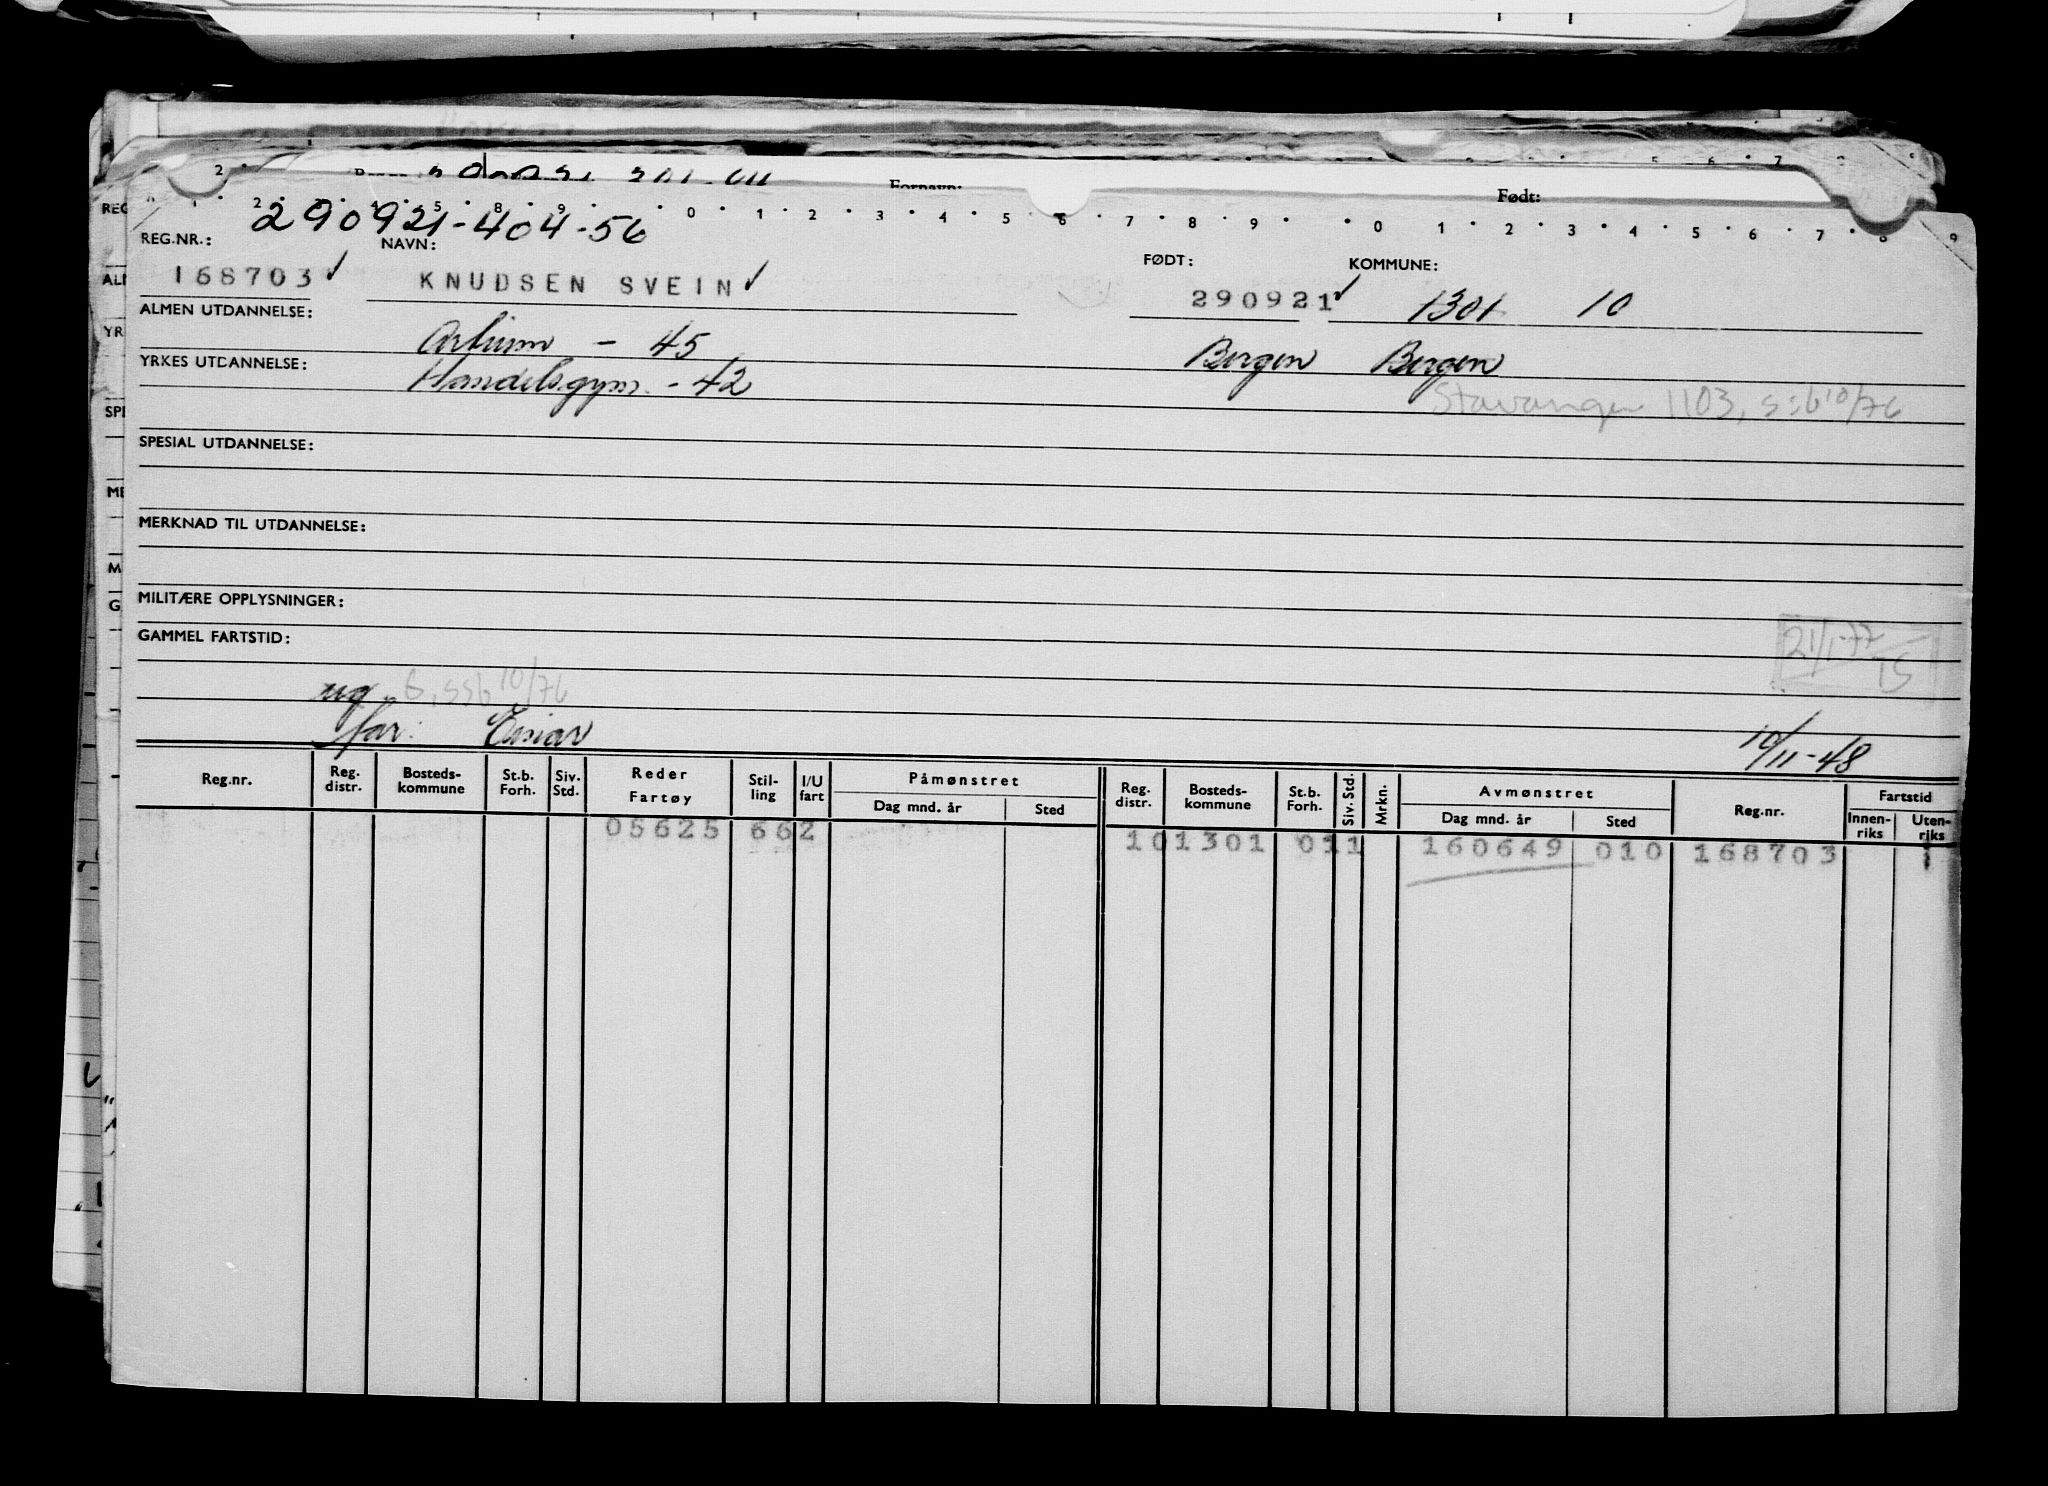 Fornavn:
Født:
290921-404-56
REG.NR.: NAVN: FØDT: KOMMUNE:
168703 KNUDSEN SVEIN 290921 1301 10
ALMEN UTDANNELSE: Artium - 45 Bergen Bergen
YRKES UTDANNELSE: Handelsgym. - 42
Stavanger 1103, ssb 10/76
SPESIAL UTDANNELSE:
MERKNAD TIL UTDANNELSE:
MILITÆRE OPPLYSNINGER:
GAMMEL FARTSTID:
21/1-77
TS
ug G, ssb 10/76
far: Einar 10/11-48
Reg.nr. Reg. distr. Bosteds-kommune St.b. Forh. Siv. Std. Reder Fartøy Stil-ling I/U fart Påmønstret Dag mnd. år Sted Reg. distr. Bosteds-kommune St.b. Forh. Siv. Std. Mrkn. Avmønstret Dag mnd. år Sted Reg.nr. Fartstid Innen-riks Uten-riks
05625 662 101301 011 160649 010 168703 1